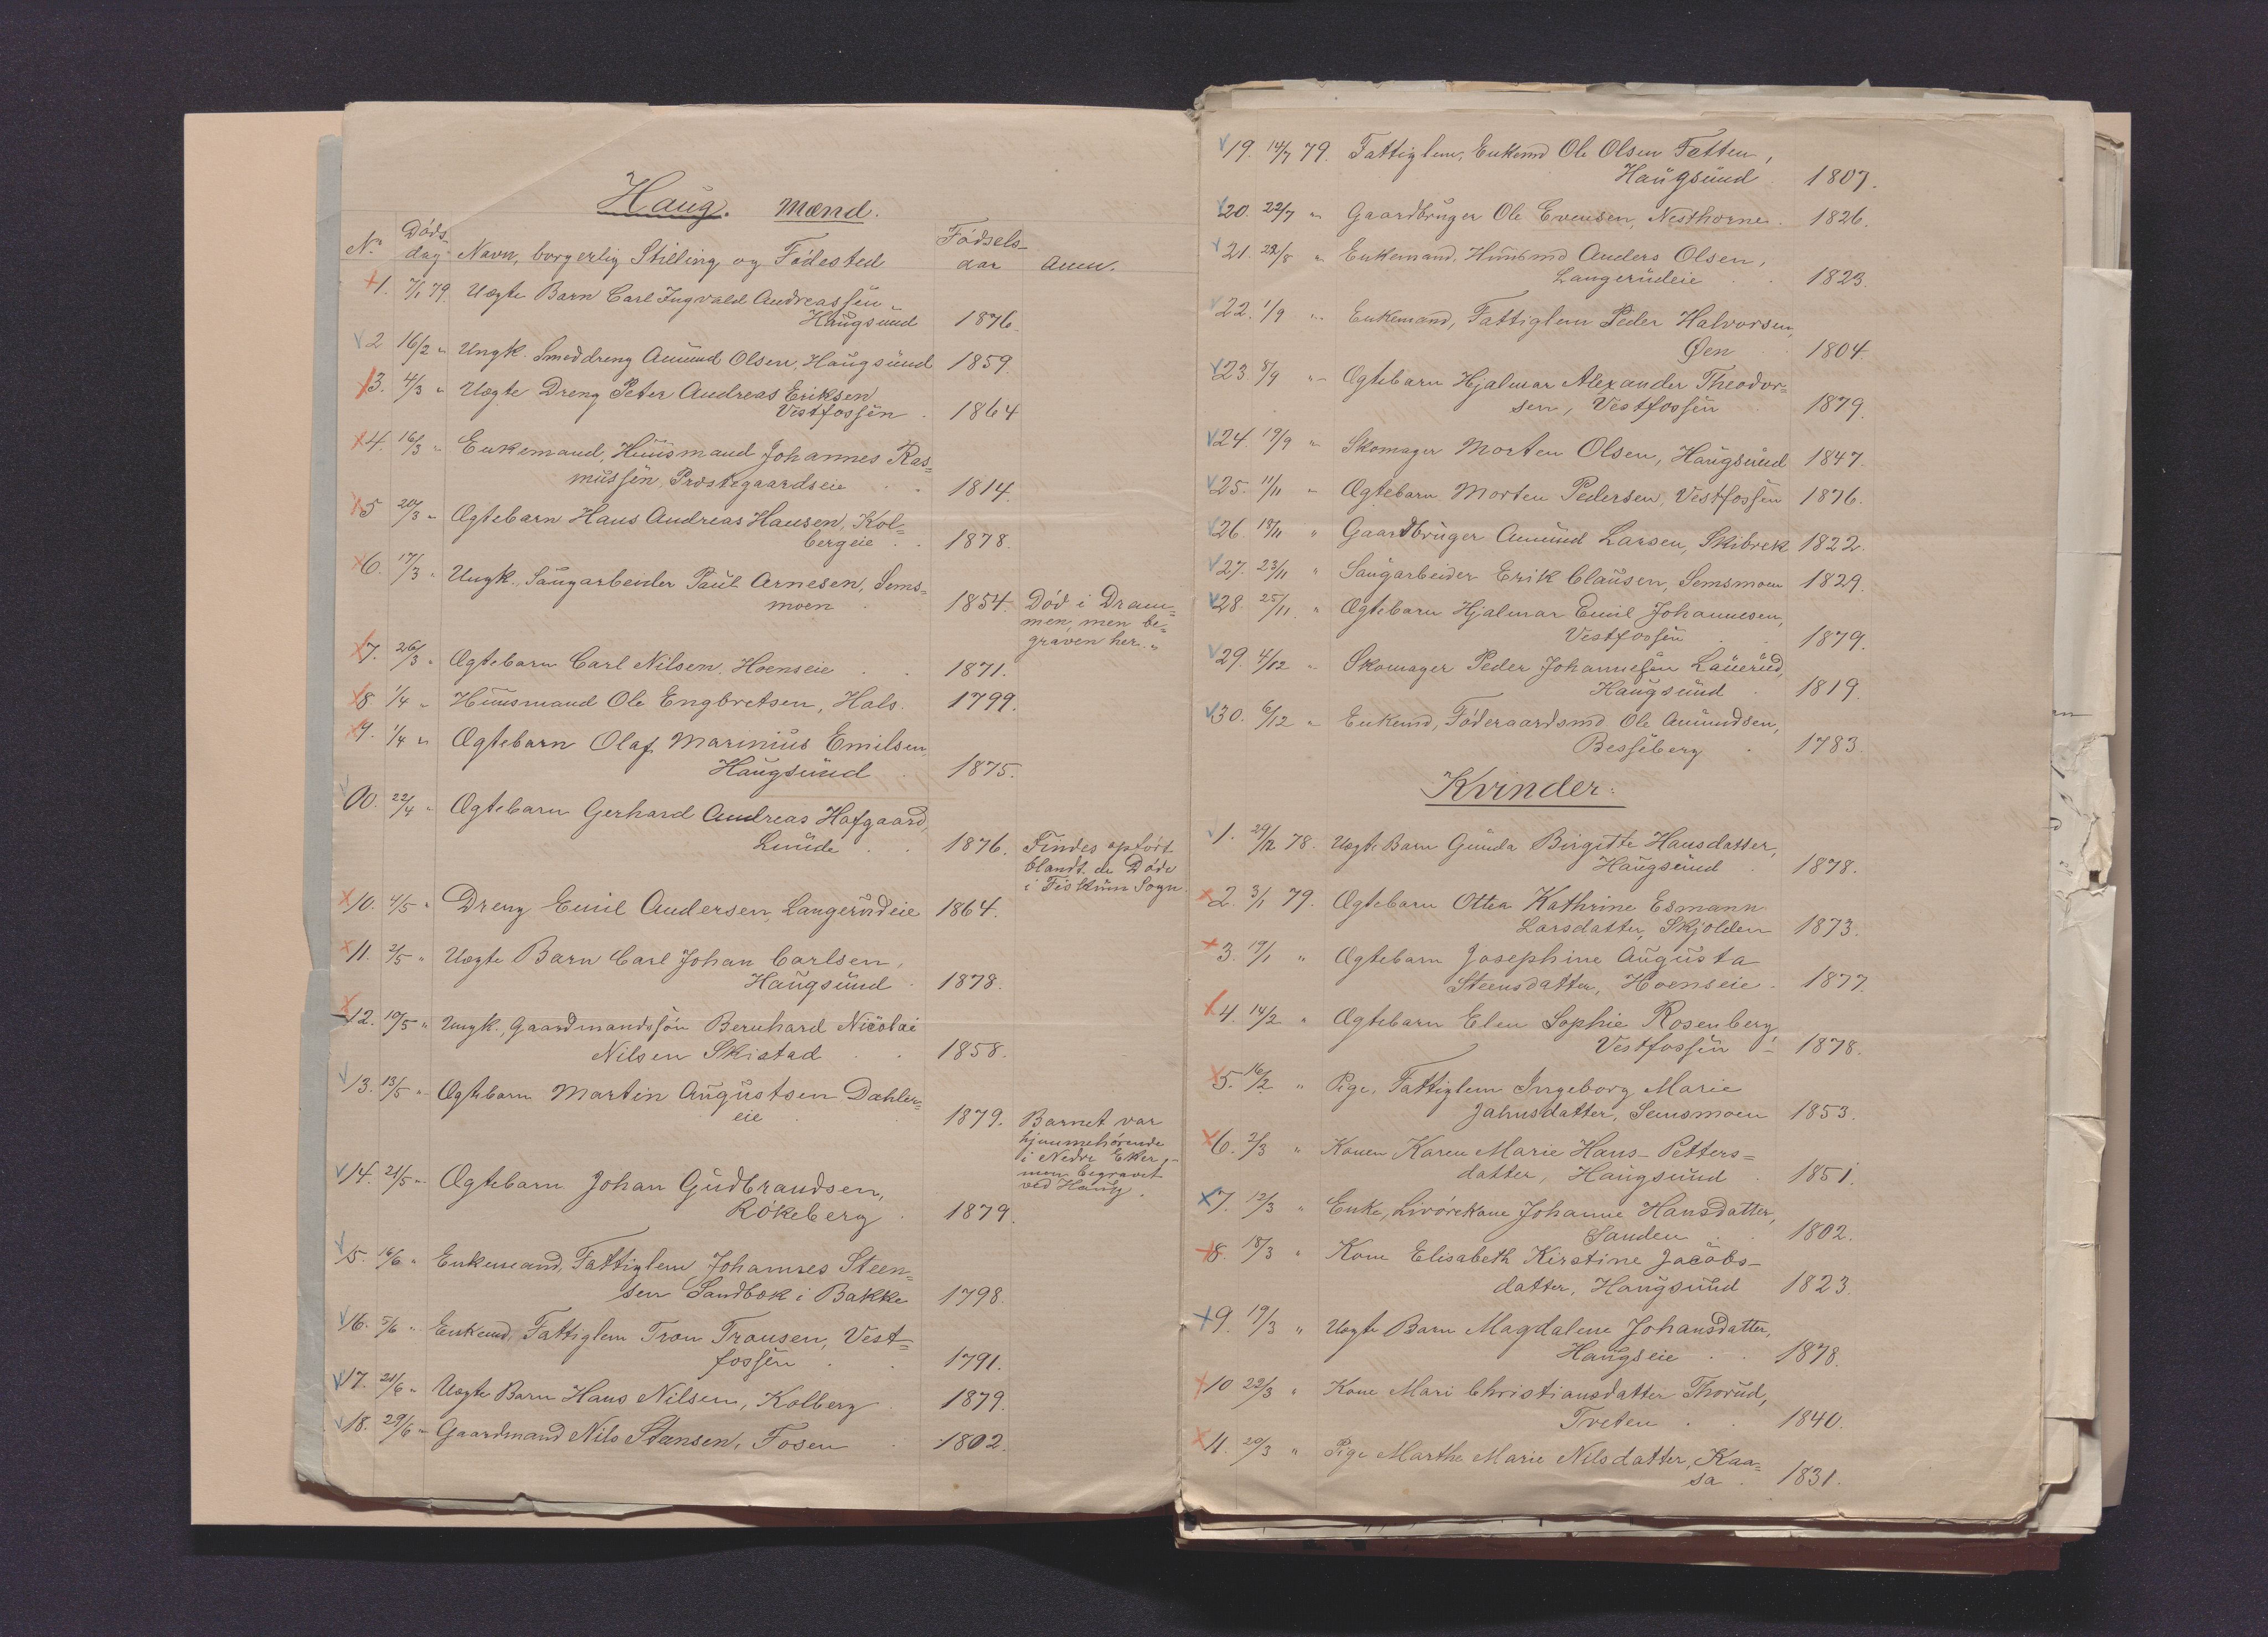 Haug. Mænd.
No Døds- dag Navn, borgerlig Stilling og Fødested Fødsels- aar Anm.
1. 7/1 79. Uægte Barn Carl Ingvald Andreassen
Haugsund 1876.
2 16/2 " Ungk. Smeddreng Amund Olsen, Haugsund 1859.
3. 4/3 " Uægte Dreng Peter Andreas Eriksen
Vestfossen . 1864
4. 16/3 " Enkemand, Huusmand Johannes Ras=
mussen, Præstegaardseie . . 1814.
5 20/3 " Ægtebarn Hans Andreas Hansen, Kol=
bergeie . . 1878.
6. 17/3 " Ungk., Saugarbeider Paul Arnesen, Sems=
moen . 1854. Død i Dram=
men, men be=
graven her. "
7. 26/3 " Ægtebarn Carl Nilsen, Hoenseie . . 1871.
8 1/4 " Huusmand Ole Engbretsen, Hals. 1799.
9. 1/4 " Ægtebarn Olaf Marinius Emilsen,
Haugsund . 1875.
00. 22/4 " Ægtebarn Gerhard Andreas Hofgaard,
Lunde . . 1876. Findes opført
blandt de Døde
i Fiskum Sogn.
10. 4/5 " Dreng Emil Andersen, Langerudeie 1864.
11. 2/5 " Uægte Barn Carl Johan Carlsen,
Haugsund . 1878.
12. 10/5 " Ungk., Gaardmandssøn Bernhard Nicolai
Nilsen Skistad . . 1858.
13. 13/5 " Ægtebarn Martin Augustsen Dæhlen=
eie . . 1879. Barnet var
hjemmehørende
i Nedre Eker,
men begravet
ved Haug.
14. 21/5 " Ægtebarn Johan Gudbrandsen,
Røkeberg . 1879.
15. 16/6 " Enkemand, Fattiglem Johannes Steen=
sen Sandbæk i Bakke 1798.
16. 5/6 " Enkemd, Fattiglem Tron Tronsen, Vest=
fossen . . 1791.
17. 21/6 " Uægte Barn Hans Nilsen, Kolberg . 1879.
18. 29/6 " Gaardmand Nils Steensen, Fosen . 1802.
19. 14/7 79. Fattiglem, Enkemd Ole Olsen Fætten,
Haugsund . 1807.
20. 22/7 " Gaardbruger Ole Evensen, Nesthorne . 1826.
21. 22/8 " Enkemand, Huusmd Anders Olsen,
Langerudeie . . 1823.
22. 1/9 " Enkemand, Fattiglem Peder Halvorsen,
Øen . 1804.
23. 8/9 " Ægtebarn Hjalmar Alexander Theodor=
sen, Vestfossen . 1879.
24. 19/9 " Skomager Morten Olsen, Haugsund 1847.
25. 11/11 " Ægtebarn Morten Pedersen, Vestfossen 1876.
26. 18/11 " Gaardbruger Amund Larsen, Skibrek 1822.
27. 23/11 " Saugarbeider Erik Clausen, Semsmoen 1829.
28. 25/11 " Ægtebarn Hjalmar Emil Johannesen,
Vestfossen . . 1879.
29. 4/12 " Skomager Peder Johannessen Lauerud,
Haugsund . 1819.
30. 6/12 " Enkemd, Føderaardsmd. Ole Amundsen,
Besseberg . 1783.
Kvinder:
1. 29/12 78. Uægte Barn Gunda Birgitte Hansdatter,
Haugsund . 1878.
2. 3/1 79. Ægtebarn Ottea Kathrine Esmann
Larsdatter, Skjolden 1873.
3. 19/1 " Ægtebarn Josephine Augusta
Steensdatter, Hoenseie . 1877.
4. 14/2 " Ægtebarn Elen Sophie Rosenberg,
Vestfossen - 1878.
5. 16/2 " Pige, Fattiglem Ingeborg Marie
Jahnsdatter, Semsmoen 1853.
6. 2/3 " Konen Karen Marie Hans-Petters=
datter, Haugsund . 1851.
7. 12/3 " Enke, Livørekone Johanne Hansdatter,
Sanden . . 1802.
8. 18/3 " Kone Elisabeth Kirstine Jacobs-
datter, Haugsund 1823.
9. 19/3 " Uægte Barn Magdalene Johansdatter,
Haugseie . . 1878.
10 22/3 " Kone Mari Christiansdatter Thorud,
Tveten . . 1840.
11. 20/3 " Pige Marthe Marie Nilsdatter, Kaa=
sa . 1831.